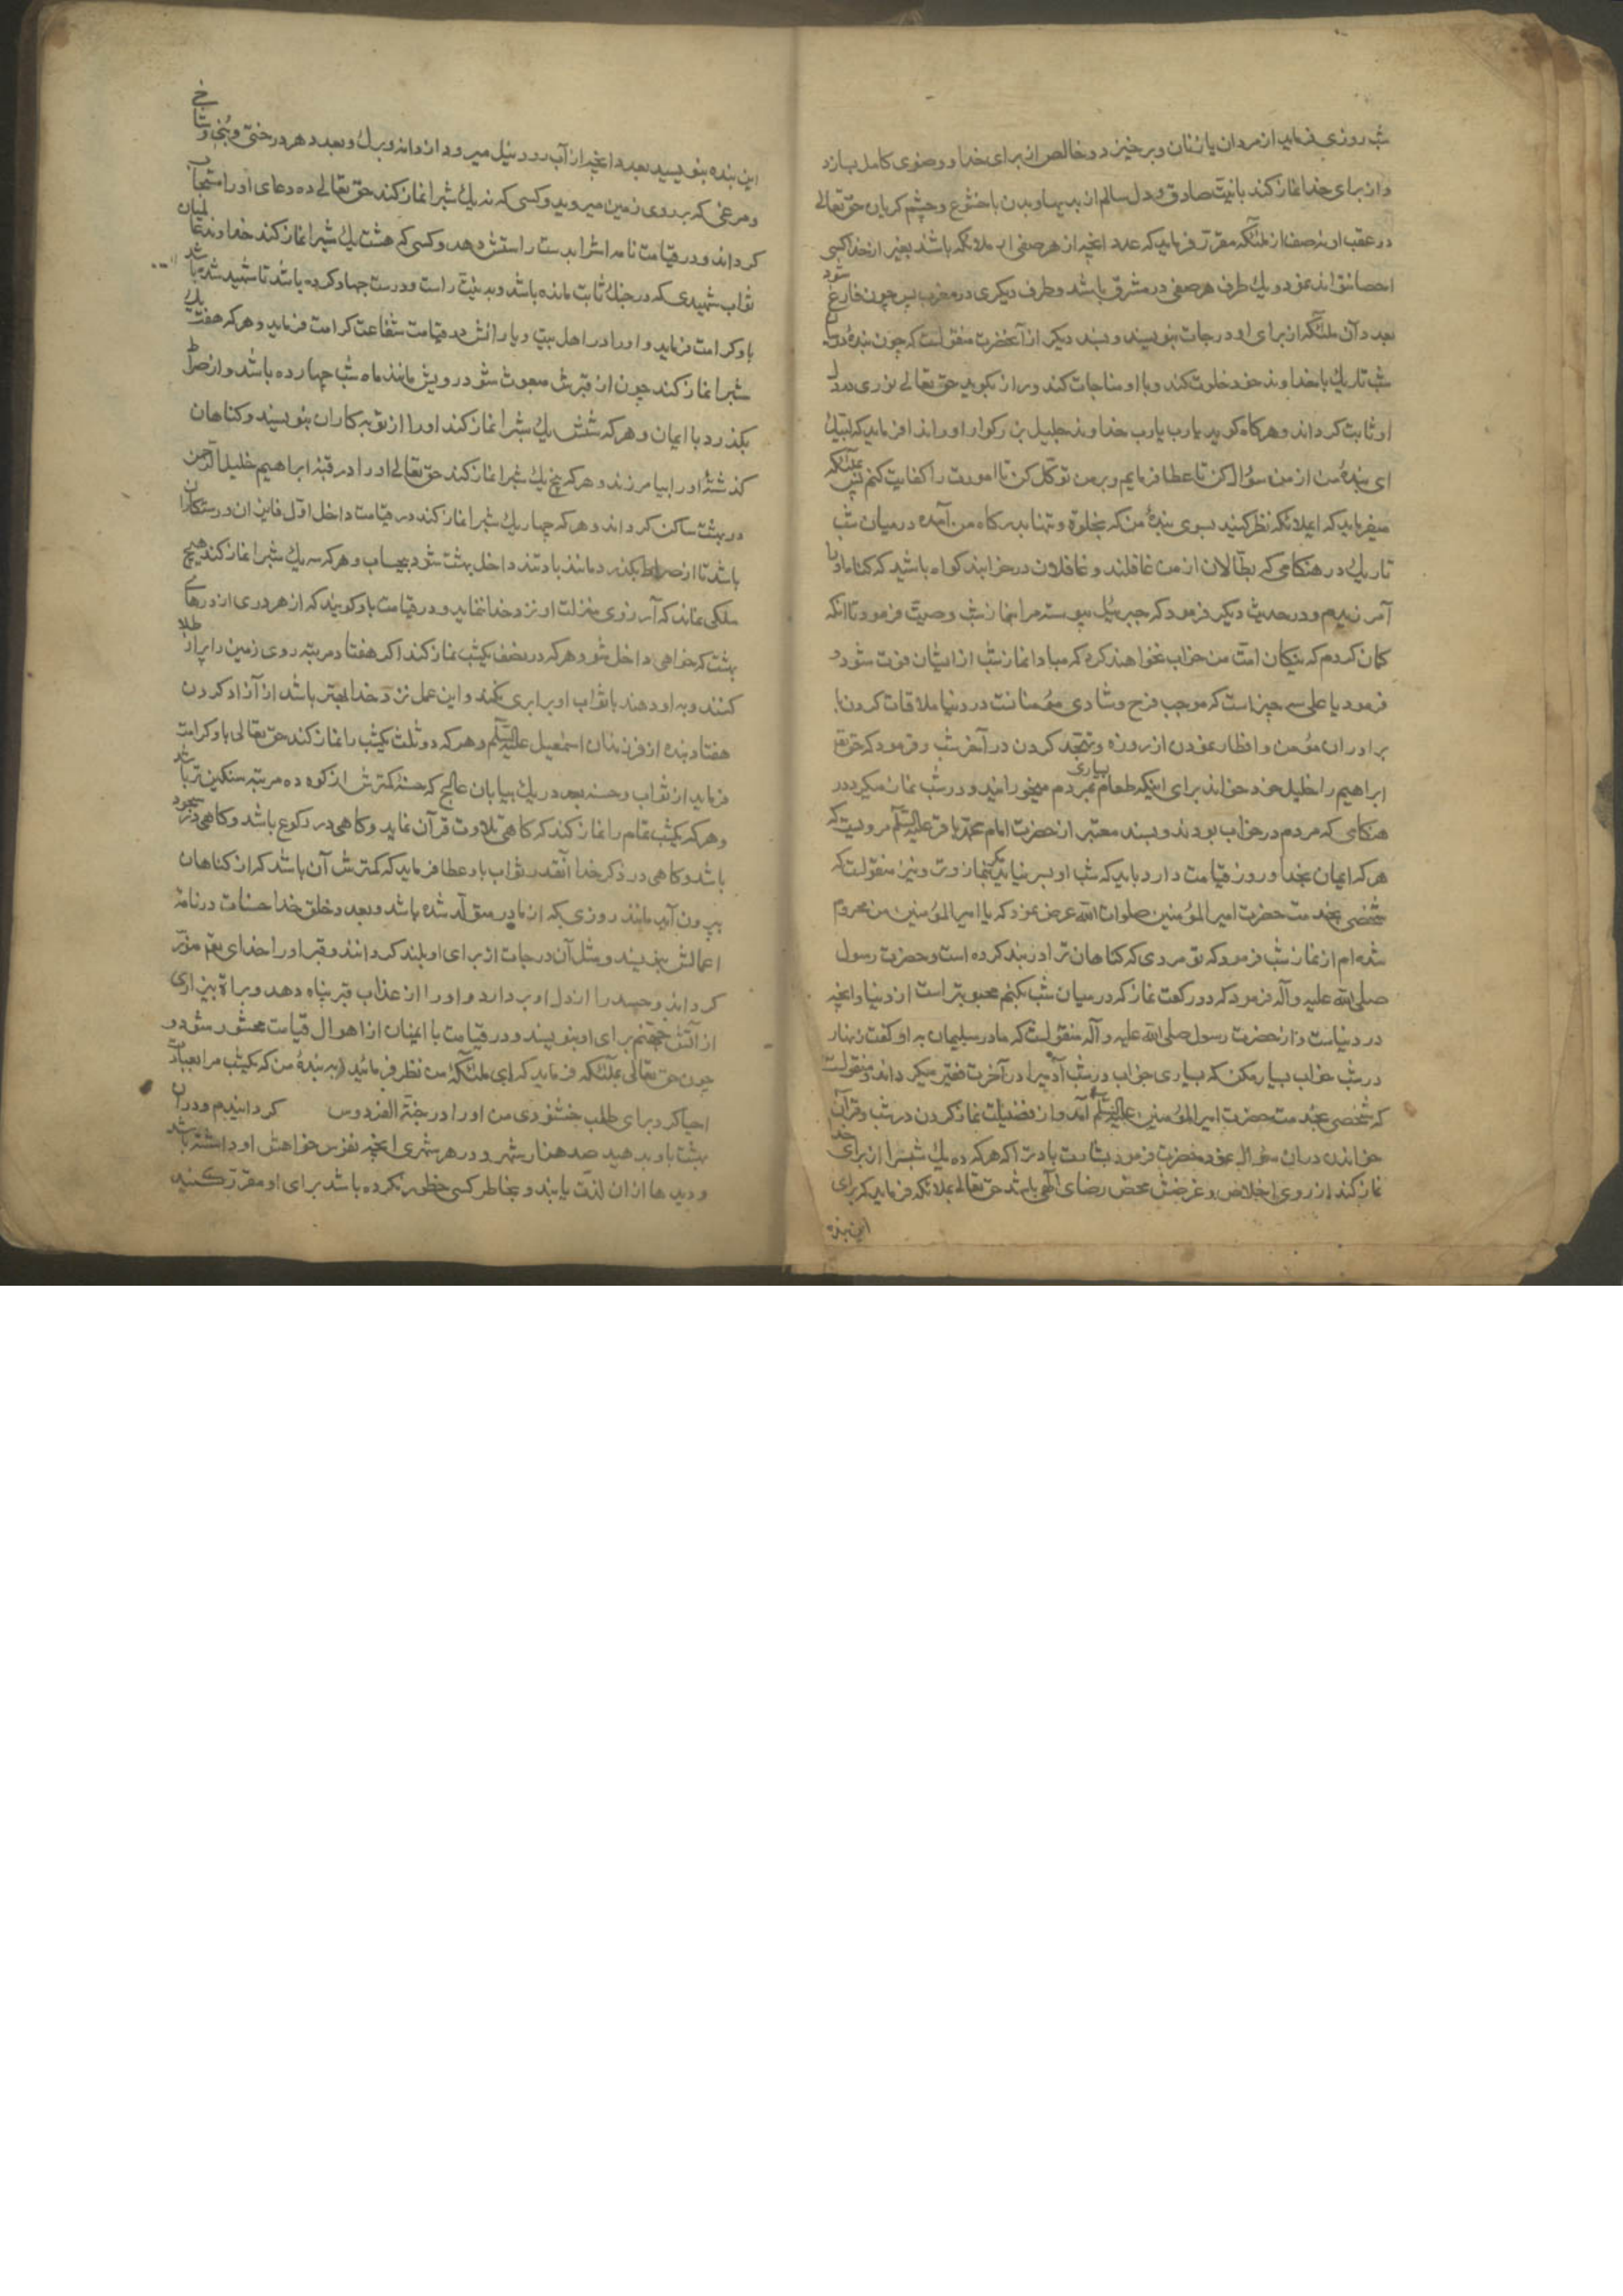 شب روزی فرماید از مردان یا زنان و برخیزد و خالص از برای خدا و وضوی کامل بسازد
و از برای خدا نماز کند بانیت صادق و دل سالم از بدیها و بدن باخشوع و چشم کریان حق تعالی
در عقب او نه صف از ملئکه مقرر فرماید که عدد انچه از هر صفی اند ملائکه باشند بغیر از خدا کسی
احصا نتواند نمود و یک طرف هر صفی در مشرق باشد و طرف دیکری در مغرب پس چون فارغ شود
بعدد آن ملئکه از برای او درجات بنویسند و بسند دیکر از آنحضرت منقولست که چون بنده در میان
شب تاریک با خداوند خود خلوت کند و با او مناجات کند و راز بکوید حق تعالی نوری در دل
او ثابت کرداند و هرکاه کوید یارب یارب خداوند جلیل بزرکوار او را ندا فرماید که لبیک
ای بندهٔ من از من سؤال کن تا عطا فرمایم و بر من توکل کن تا امورت را کفایت کنم پس بملئکه
میفرماید که ایملائکه نظر کنید بسوی بندهٔ من که بخلوة و تنها بدرکاه من آمده در میان شب
تاریک در هنکامی که بطالان از من غافلند و غافلان در خوابند کواه باشید که کناهان او را
آمرزیدم و در حدیث دیکر فرمود که جبرئیل پیوسته مرا بنماز شب وصیت فرمود تا انکه
کمان کردم که نیکان امت من خواب نخواهند کرد که مبادا نماز شب از ایشان فوت شود و
فرمود یا علی سه چیز است که موجب فرح و شادی مؤمنانست در دنیا ملاقات کردن با
برادران مؤمن و افطار نمودن از روزه و تهجد کردن در آخر شب و فرمود که حق تع
ابراهیم را خلیل خود خواند برای اینکه طعام بسیاری بمردم میخورانید و در شب نماز میکرد در
هنکامی که مردم در خواب بودند و بسند معتبر از حضرت امام محمد باقر علیه السلم مرویست که
هرکه ایمان بخدا و روز قیامت دارد باید که شب او بسر نیاید مکر بنماز وتر و نیز منقولست که
شخصی بخدمت حضرت امیر المؤمنین صلوات الله عرض نمود که یا امیر المؤمنین من محروم
شده ام از نماز شب فرمود که تو مردی که کناهان ترا در بند کرده است و حضرت رسول
صلی الله علیه و آله فرمود که دو رکعت نماز که در میان شب بکنم محبوبتر است از دنیا و انچه
در دنیاست و از حضرت رسول صلی الله علیه و آله منقولست که مادر سلیمان به او کفت زنهار
در شب خواب بسیار مکن که بسیاری خواب در شب آدمیرا در آخرت فقیر میکرداند و منقولست
که شخصی بخدمت حضرت امیر المؤمنین علیه السلم آمد و از فضیلت نماز کردن در شب و قرآن
خواندن در ان سؤال نمود حضرت فرمود بشارت باد ترا که هرکه ده یک شبرا از برای خدا
نماز کند از روی اخلاص و غرضش محض رضای الهی باشد حق تعالی بملائکه فرماید که برای
این بنده
این بنده بنویسید بعدد انچه از آب رود نیل میروید از دانه و برک و بعدد هر درختی و بیخ و شاخ
و مرغی که بر روی زمین میروید و کسی که نه یک شبرا نماز کند حق تعالی ده دعای او را مستجاب
کرداند و در قیامت نامه اشرا بدست راستش دهد و کسی که هشت یک شبرا نماز کند خداوند عالمیان
ثواب شهیدی که در جنک ثابت مانده باشد و به نیت راست و درست جهاد کرده باشد تا شهید شده باشد
باو کرامت فرماید و او را در اهل بیت و یارانش در قیامت شفاعت کرامت فرماید و هرکه هفت یک
شبرا نماز کند چون از قبرش مبعوث شود رویش مانند ماه شب چهارده باشد و از صراط
بکذرد با ایمان و هرکه شش یک شبرا نماز کند او را از توبه کاران بنویسند و کناهان
کذشتهٔ او را بیامرزند و هرکه پنج یک شبرا نماز کند حق تعالی او را در قبهٔ ابراهیم خلیل الرحمن
در بهشت ساکن کرداند و هرکه چهار یک شبرا نماز کند در قیامت داخل اول فایزان و رستکاران
باشد تا از صراط بکذرد مانند باد تند داخل بهشت شود بیحساب و هرکه سه یک شبرا نماز کند هیچ
ملکی نماند که آرزوی منزلت او نزد خدا نماید و در قیامت باو کویند که از هر دری از درهای
بهشت که خواهی داخل شو و هرکه در نصف یکشب نماز کند اکر هفتاد مرتبه روی زمین را پر از طلا
کنند و به او دهند با ثواب او برابری نکند و این عمل نزد خدا بهتر باشد از آزاد کردن
هفتاد بنده از فرزندان اسمعیل علیه السلم و هرکه دو ثلث یکشب را نماز کند حق تعالی باو کرامت
فرماید از ثواب و حسنه بعدد ریک بیابان عالج که حسنهٔ کمترش از کوه ده مرتبه سنکین تر باشد
و هرکه یکشب تمام را نماز کند که کاهی تلاوت قرآن نماید و کاهی در رکوع باشد و کاهی در سجود
باشد و کاهی در ذکر خدا آنقدر ثواب باو عطا فرماید که کمترش آن باشد که از کناهان
بیرون آید مانند روزی که از مادر متولد شده باشد و بعدد خلق خدا حسنات در نامهٔ
اعمالش بنویسند و مثل آن درجات از برای او بلند کردانند و قبر او را خدای تع منور
کرداند و حسد را از دل او بردارد و او را از عذاب قبر پناه دهد و براة بیزاری
از آتش جهنم برای او بنویسند و در قیامت با ایمنان از اهوال قیامت محشور شود و
چون حق تعالی بملئکه فرماید که ای ملئکهٔ من نظر فرمائید به بندهٔ من که یکشب مرا بعبادت
احیا کرد برای طلب خشنودی من او را در جنة الفردوس کردانیدم و در ان
بهشت باو بدهید صد هزار شهر و در هر شهری انچه نفوس خواهش او داشته باشد
و دیدها از ان لذت یابند و بخاطر کسی خطور نکرده باشد برای او مقرر کنید